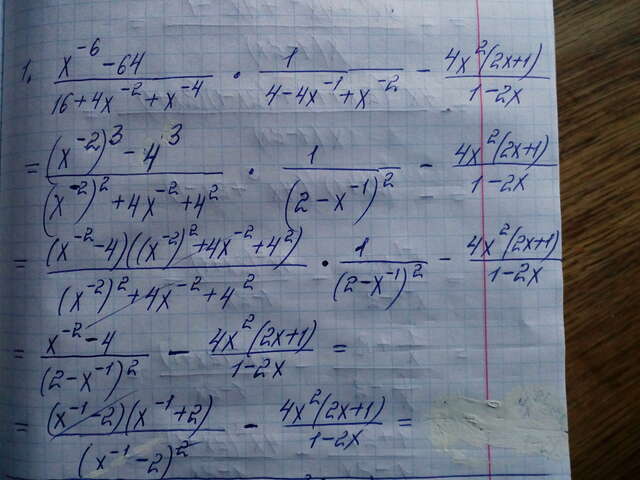 1. \frac{x^{-6} - 64}{16 + 4x^{-2} + x^{-4}} \cdot \frac{1}{4 - 4x^{-1} + x^{-2}} - \frac{4x^2(2x+1)}{1-2x}
= \frac{(x^{-2})^3 - 4^3}{(x^{-2})^2 + 4x^{-2} + 4^2} \cdot \frac{1}{(2 - x^{-1})^2} - \frac{4x^2(2x+1)}{1-2x}
= \frac{(x^{-2} - 4)((x^{-2})^2 + 4x^{-2} + 4^2)}{(x^{-2})^2 + 4x^{-2} + 4^2} \cdot \frac{1}{(2 - x^{-1})^2} - \frac{4x^2(2x+1)}{1-2x}
= \frac{x^{-2} - 4}{(2 - x^{-1})^2} - \frac{4x^2(2x+1)}{1-2x} =
= \frac{(x^{-1} - 2)(x^{-1} + 2)}{(x^{-1} - 2)^2} - \frac{4x^2(2x+1)}{1-2x} =